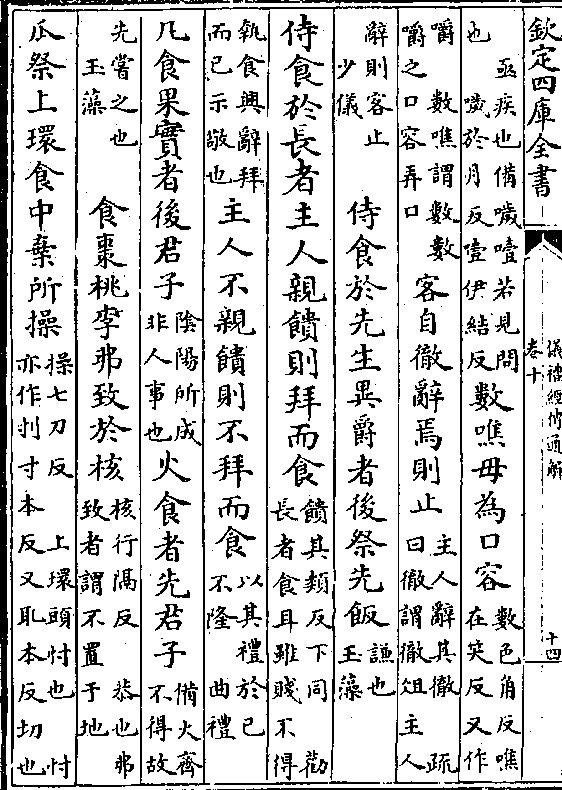 欽定四庫全書
儀禮經傳通解
卷十
十四
亟疾也備噦噎若見問
也　噦於月反噎伊結反
數噍毋為口容
數色角反噍
在笑反又作
嚼　數噍謂數數
嚼之口容弄口
客自徹辭焉則止
主人辭其徹　疏
曰徹謂徹俎主人
辭則客止
少儀
侍食於先生異爵者後祭先飯
謙也
玉藻
侍食於長者主人親饋則拜而食
饋其類反下同　勸
長者食耳雖賤不得
執食興辭拜
而已示敬也
主人不親饋則不拜而食
以其禮於己
不隆　曲禮
凡食果實者後君子
陰陽所成
非人事也
火食者先君子
備火齊
不得故
先嘗之也
玉藻
食棗桃李弗致於核
核行隔反　恭也弗
致者謂不置于地
瓜祭上環食中棄所操
操七刀反　上環頭忖也　忖
亦作刌寸本反又耴本反切也